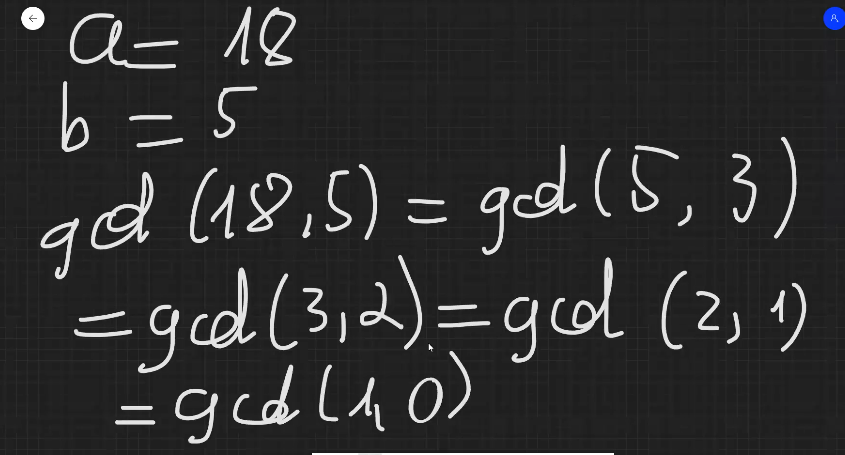 a = 18
b = 5
gcd (18,5) = gcd (5, 3)
= gcd (3,2) = gcd (2, 1)
= gcd (1, 0)